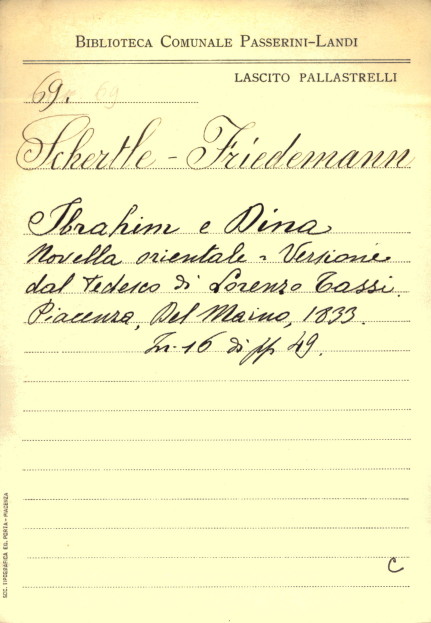 BIBLIOTECA COMUNALE PASSERINI-LANDI
LASCITO PALLASTRELLI
69. 69
Schertle - Friedemann
Ibrahim e Dina
Novella orientale - Versione
dal tedesco di Lorenzo Tassi.
Piacenza, Del Maino, 1833.
In-16 di pp 49.
C
SOC. TIPOGRAFICA ED. PORTA - PIACENZA